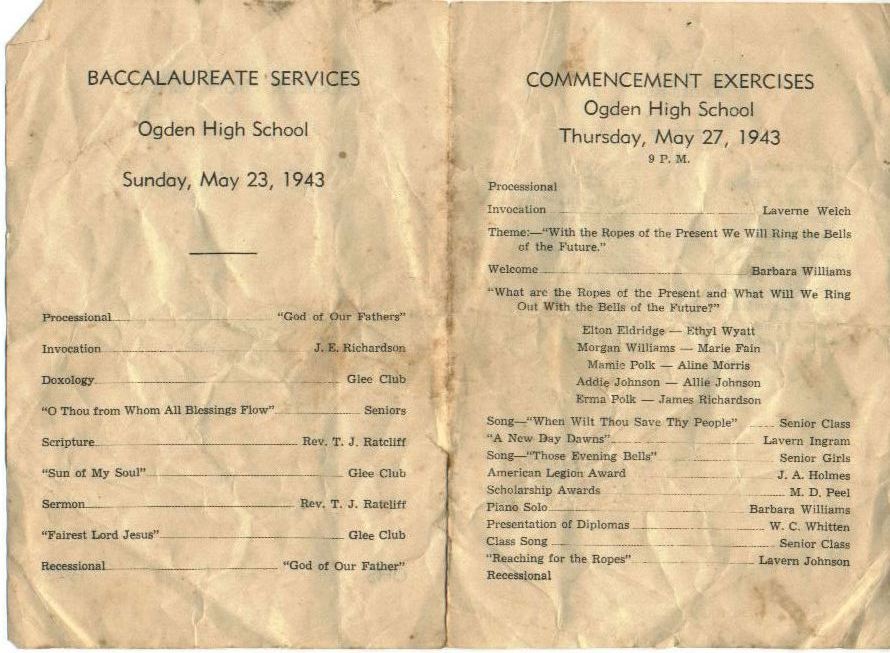 BACCALAUREATE SERVICES
Ogden High School
Sunday, May 23, 1943
Processional "God of Our Fathers"
Invocation J. E. Richardson
Doxology Glee Club
"O Thou from Whom All Blessings Flow" Seniors
Scripture Rev. T. J. Ratcliff
"Sun of My Soul" Glee Club
Sermon Rev. T. J. Ratcliff
"Fairest Lord Jesus" Glee Club
Recessional "God of Our Father"
COMMENCEMENT EXERCISES
Ogden High School
Thursday, May 27, 1943
9 P. M.
Processional
Invocation Laverne Welch
Theme:—"With the Ropes of the Present We Will Ring the Bells
of the Future."
Welcome Barbara Williams
"What are the Ropes of the Present and What Will We Ring
Out With the Bells of the Future?"
Elton Eldridge — Ethyl Wyatt
Morgan Williams — Marie Fain
Mamie Polk — Aline Morris
Addie Johnson — Allie Johnson
Erma Polk — James Richardson
Song—"When Wilt Thou Save Thy People" Senior Class
"A New Day Dawns" Lavern Ingram
Song—"Those Evening Bells" Senior Girls
American Legion Award J. A. Holmes
Scholarship Awards M. D. Peel
Piano Solo Barbara Williams
Presentation of Diplomas W. C. Whitten
Class Song Senior Class
"Reaching for the Ropes" Lavern Johnson
Recessional